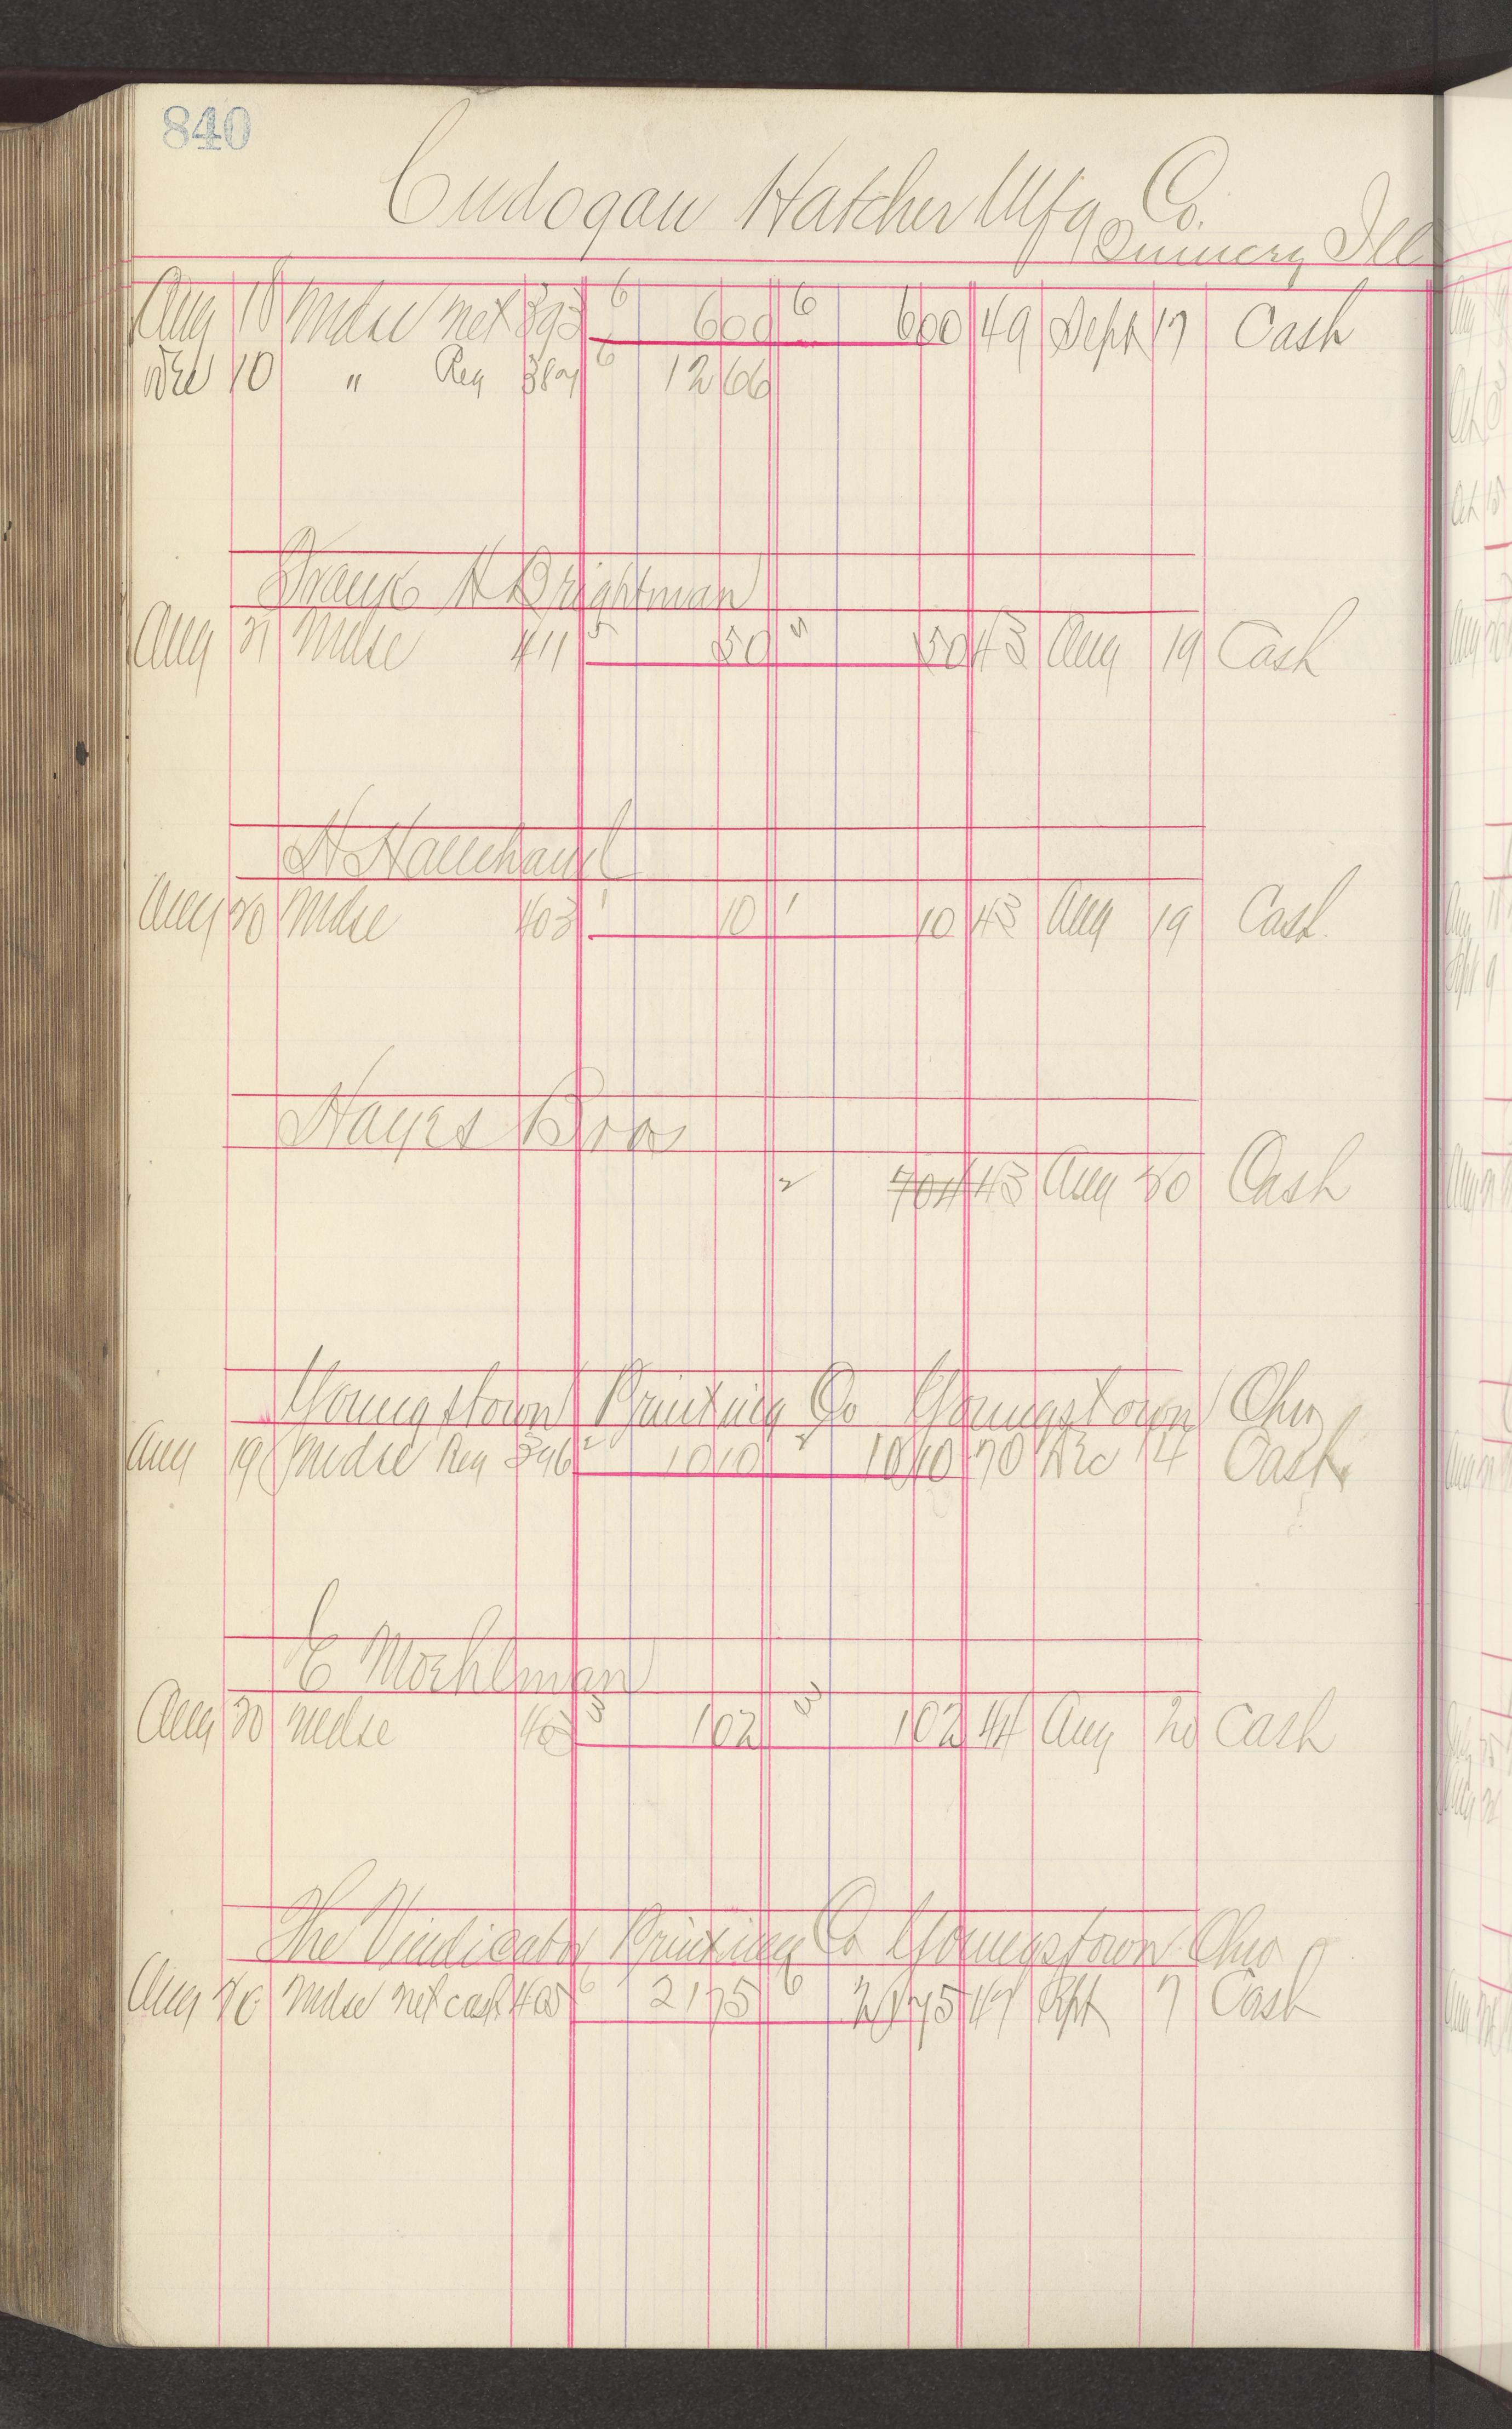 840
Cudogan Hatcher Mfg Co.
Quincy Ill
Aug 18 Mdse net 393 6 600 6 600 49 Sept 17 Cash
Dec 10 " Reg 387 6 12 66
Frank H Brightman
Aug 21 Mdse 411 5 50 " 50 43 Aug 19 Cash
H Hauchaul
Aug 20 Mdse 403 1 10 1 10 43 Aug 19 Cash.
Hayes Bros
2 704 43 Aug 20 Cash
Youngstown Printing Co Youngstown Ohio
Aug 19 Mdse Reg 396 2 10 10 2 10 10 70 Dec 14 Cash
C Moehlman
Aug 20 Mdse 403 3 102 3 102 44 Aug 20 Cash
The Vindicator Printing Co Youngstown Ohio
Aug 20 Mdse net cash 405 6 21 75 6 21 75 47 Sept 7 Cash